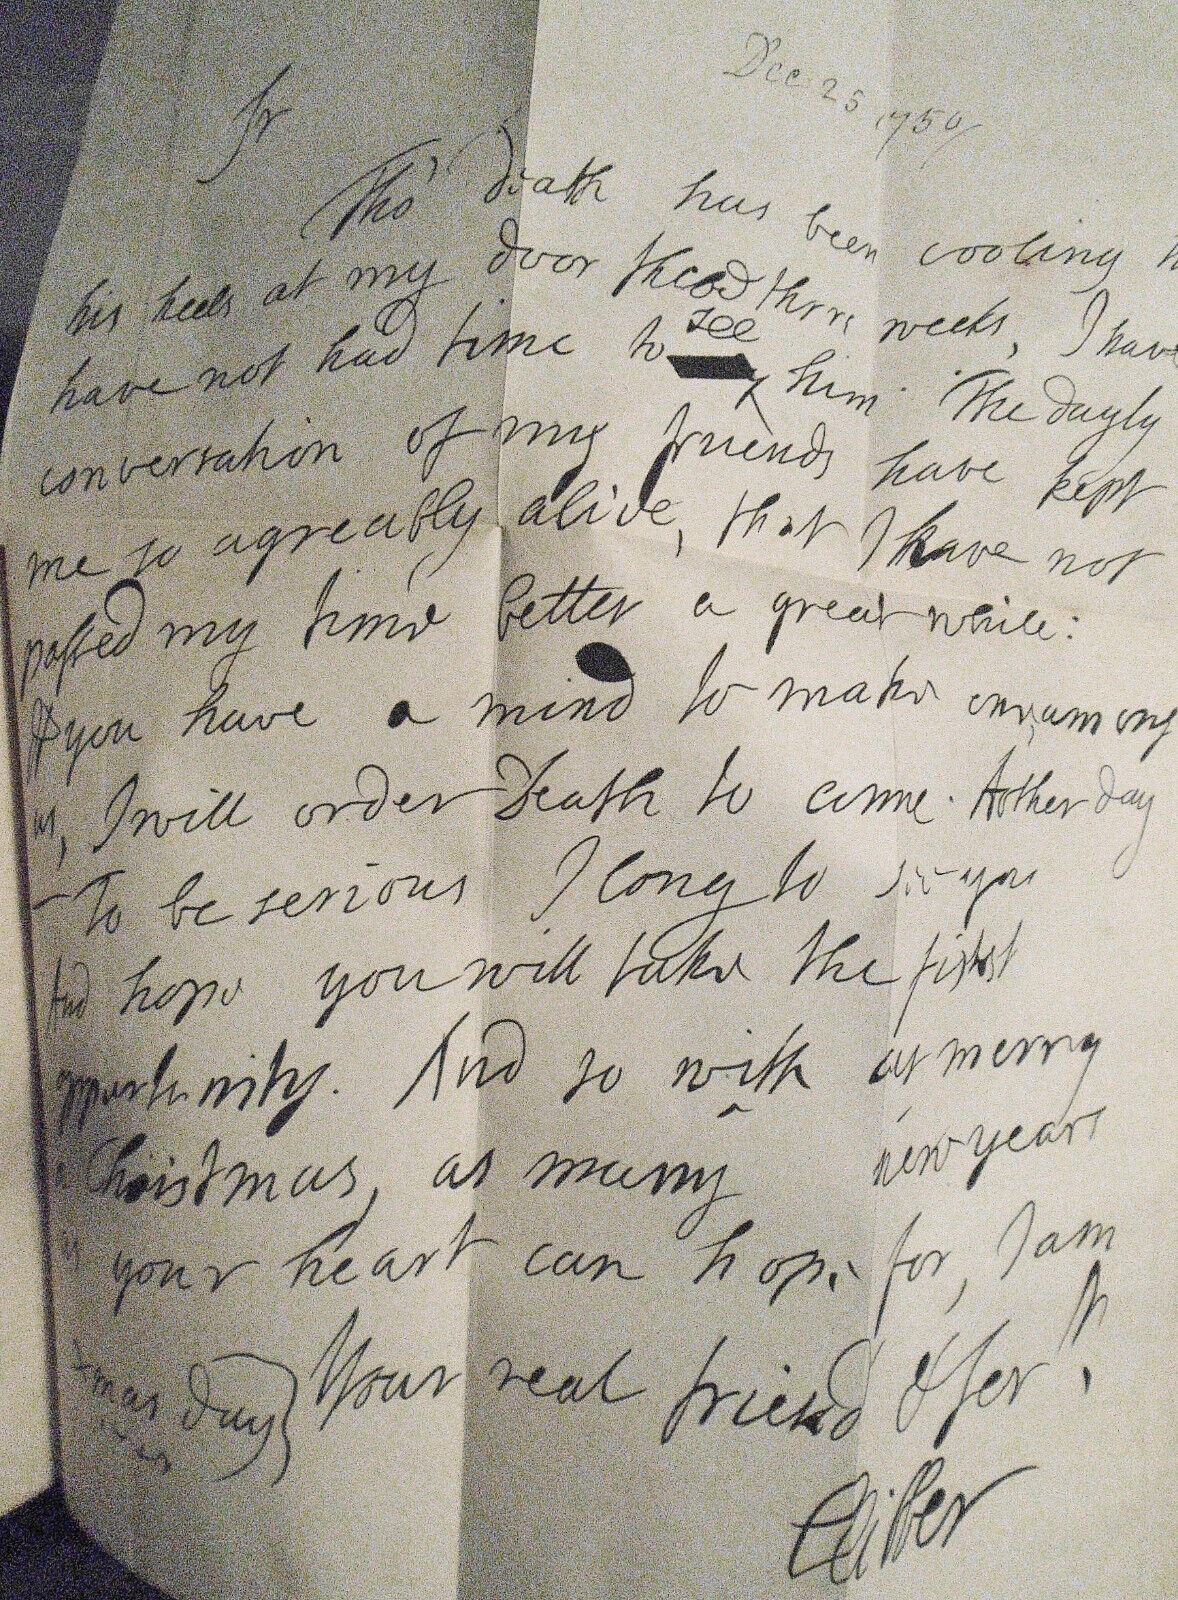 Dec. 25 1750
Sr
Tho' Death has been cooling
his heels at my door these three weeks, I have
have not had time to see him. The dayly
conversation of my friends have kept
me so agreably alive, that I have not
passed my time better a great while:
If you have a mind to make one among
us, I will order Death to come Another day
- To be serious I long to see you
And hope you will take the first
opportunity. And so with as merry
a Christmas, as many new years
as your heart can hope for, I am
Sr
Your real friend & ser.t
mas day
CCibber